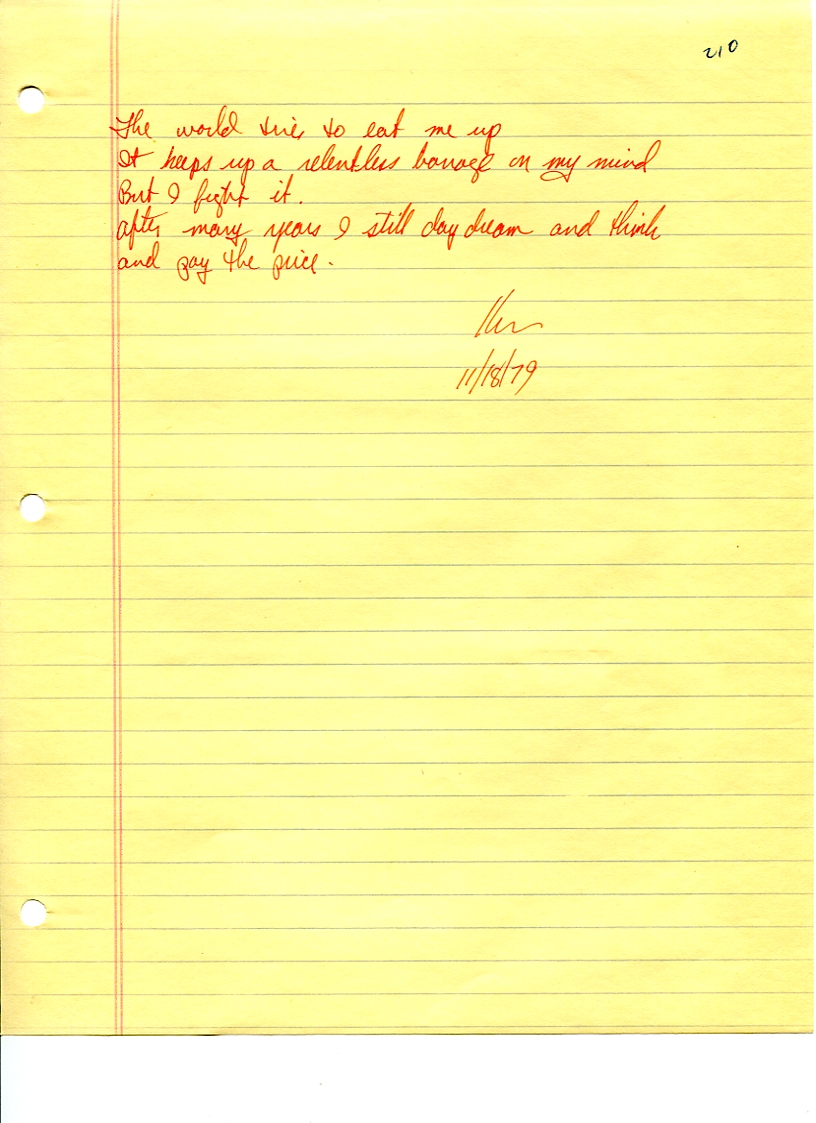 210
The world tries to eat me up
It keeps up a relentless barrage on my mind
But I fight it.
after many years I still day dream and think
and pay the price.
11/18/79